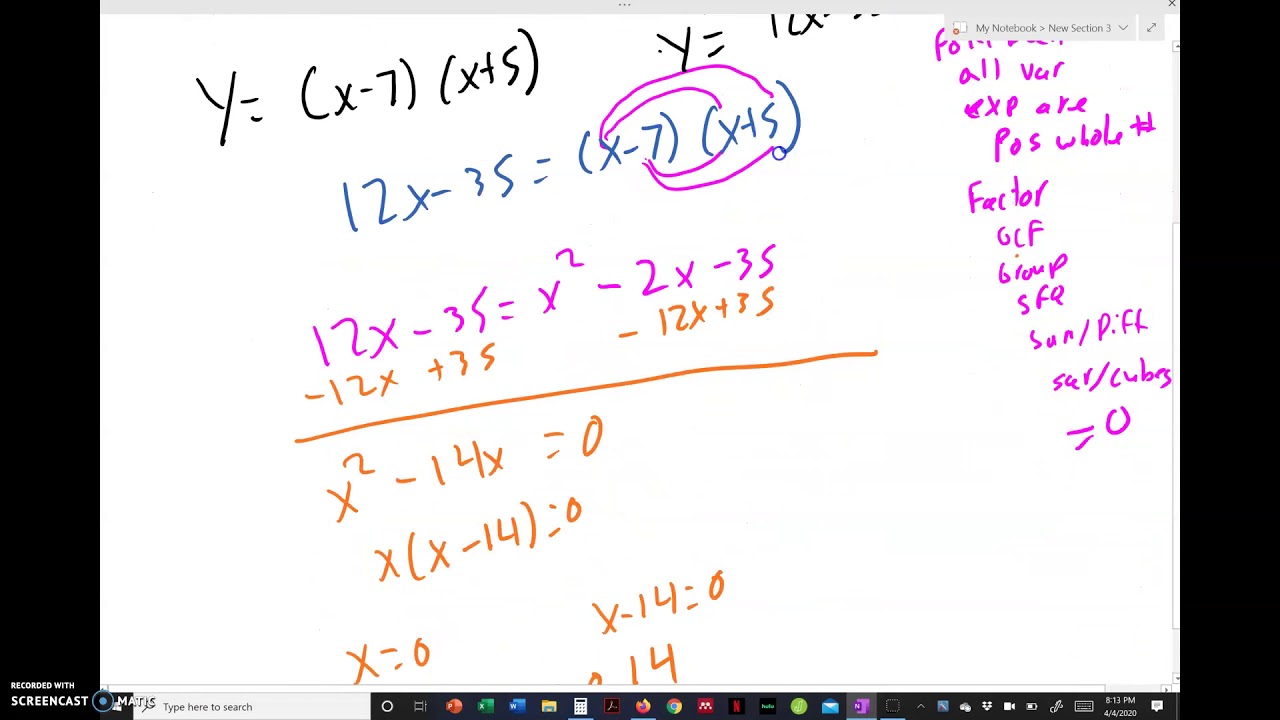 My Notebook > New Section 3
y = (x-7) (x+5)
y =
12x-35 = (x-7) (x+5)
12x - 35 = x² - 2x - 35
-12x +35 - 12x + 35
x² - 14x = 0
x(x-14)=0
x-14=0
x=0
14
all var
exp are
pos whole #
Factor
GCF
Group
SFQ
Sum/Diff
sqr/cubes
= 0
RECORDED WITH
SCREENCAST MATIC
Type here to search
hulu
8:13 PM
4/4/2020